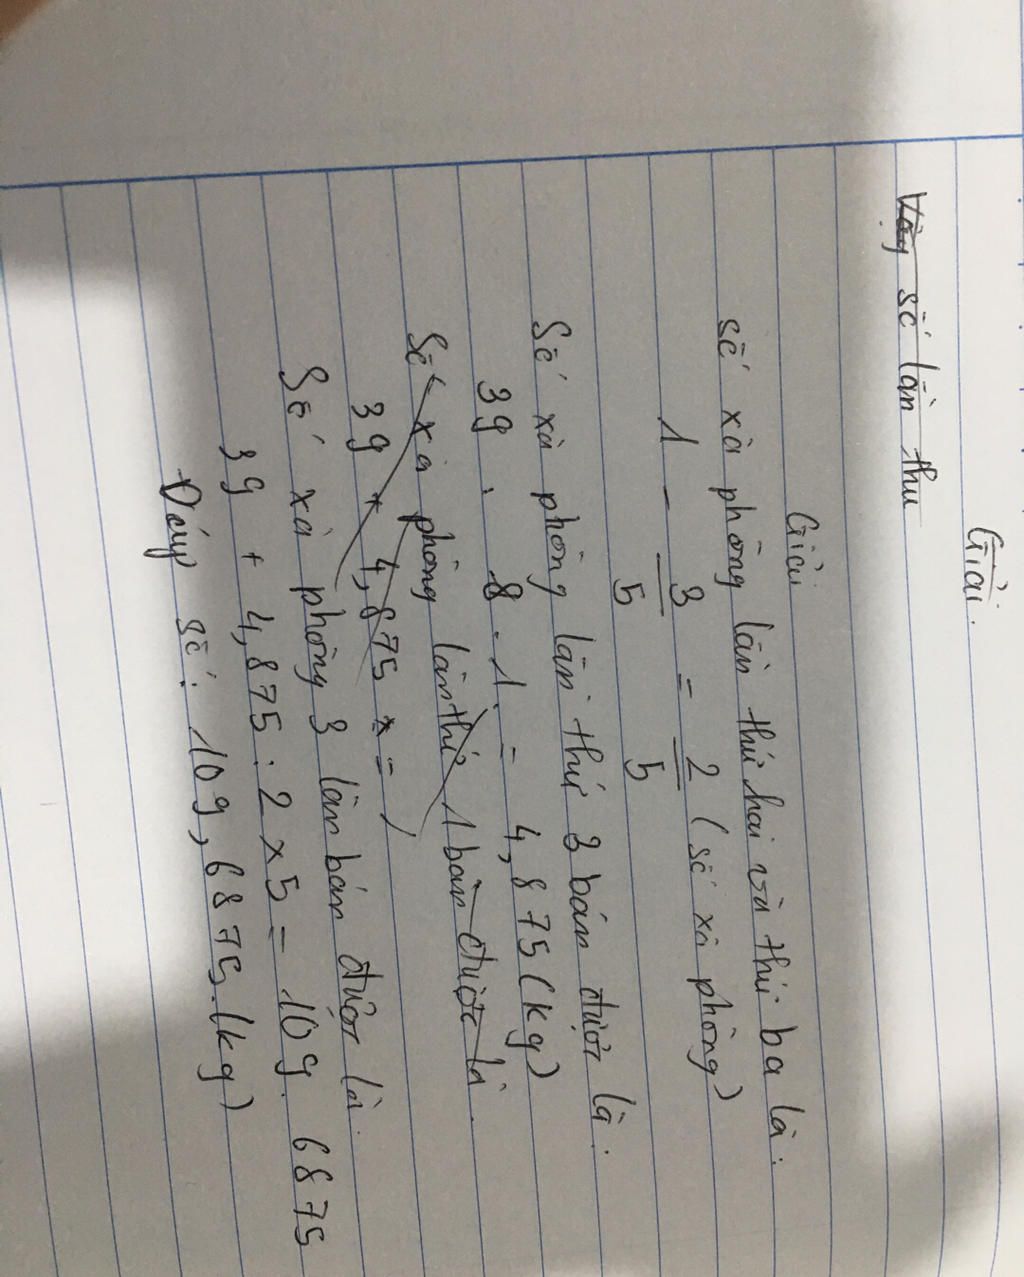 Giải.
Vậy số lần thu
Giải
số xà phòng lần thứ hai và thứ ba là:
1 - 3/5 = 2/5 (số xà phòng)
Số xà phòng lần thứ 3 bán được là:
39 : 8 . 1 = 4,875 (kg)
Số xà phòng lần thứ 1 bán được là.
39 + 4,875 x =
Số xà phòng 3 lần bán được là:
39 + 4,875 : 2 x 5 = 109 6875
Đáp số: 109,6875 (kg)